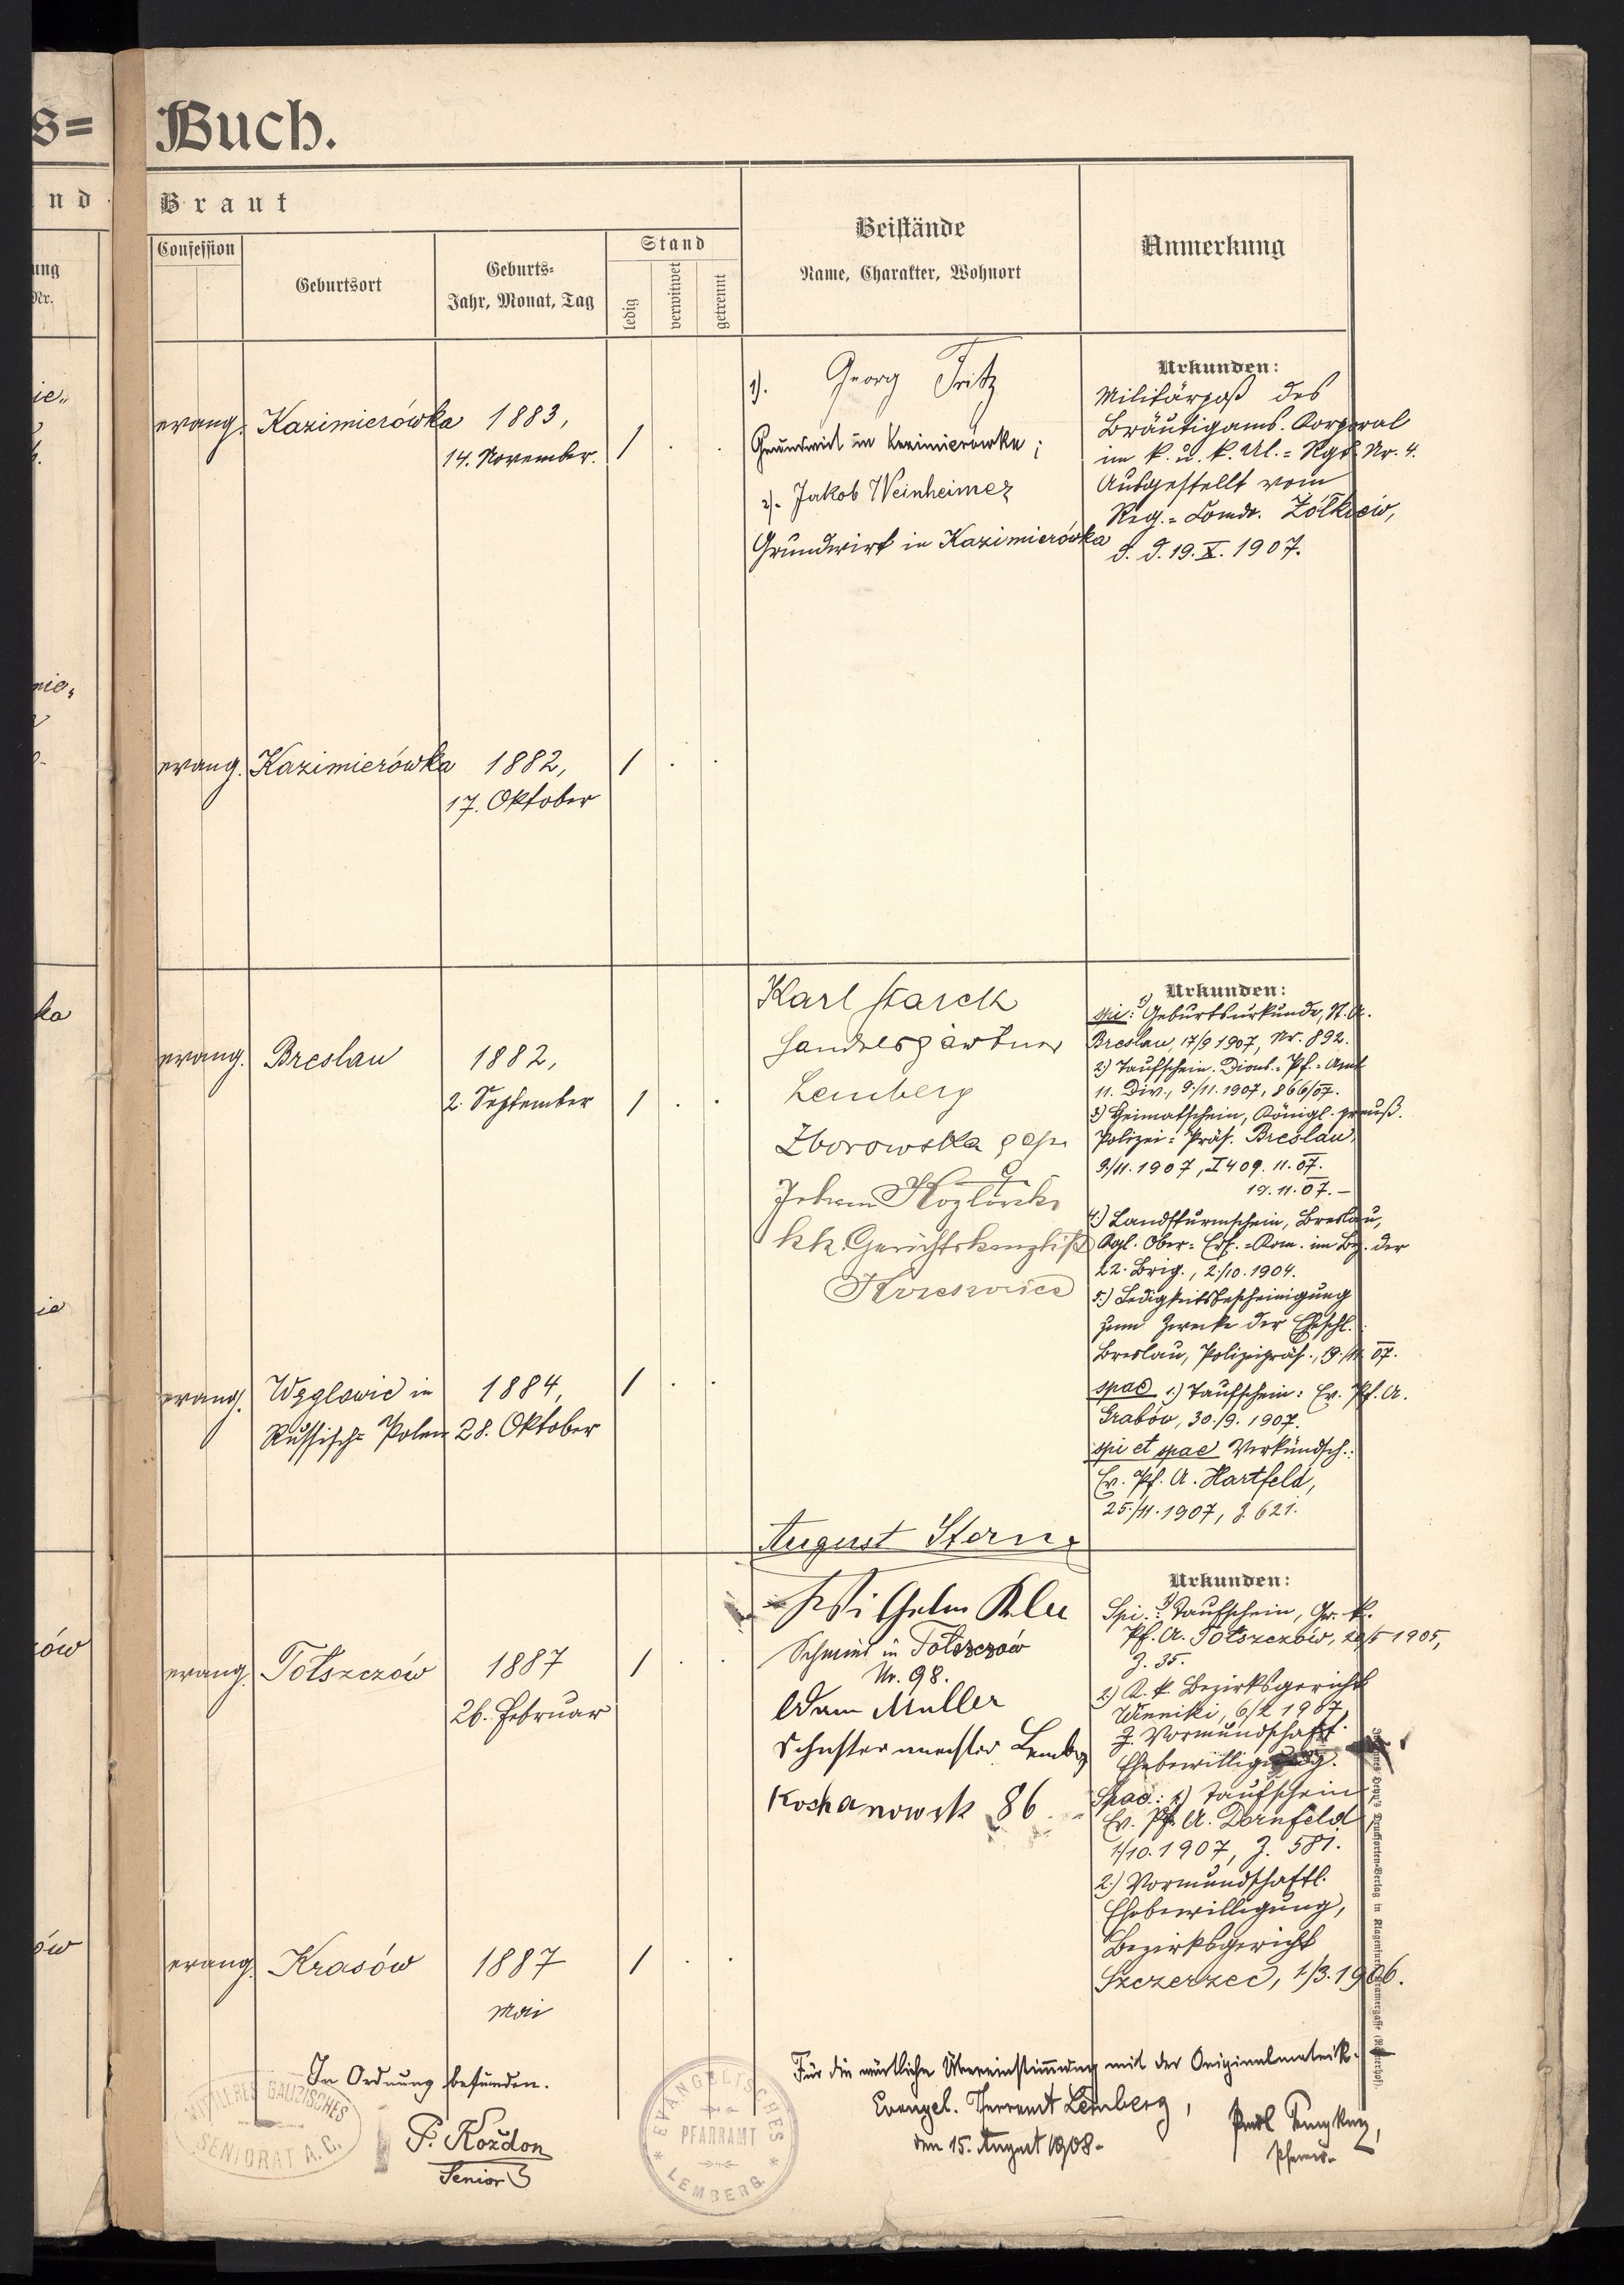 s=
Buch.
nd
Braut
ung
Nr.
Confession
Geburtsort
Geburts-
Jahr, Monat, Tag
Stand
ledig
verwitwet
getrennt
Beistände
Name, Charakter, Wohnort
Anmerkung
evang. Kazimierówka 1883,
14. November. 1 . .
1). Georg Fritz
Grundwirt in Kazimierówka;
2). Jakob Weinheimer
Grundwirt in Kazimierówka
Urkunden:
Militärpaß des
Bräutigams. Korporal
im k. u. k. Ul.= Rgt. Nr. 4.
Ausgestellt vom
Reg.= Comdo. Żółkiew,
d. d. 19. X. 1907.
evang. Kazimierówka 1882, 1 . .
17. Oktober
evang. Breslau 1882,
2. September 1 . .
Karl Starck
Handelsgärtner
Lemberg
Zborowska
Johann
kk. Gerichtskanzlist
Urkunden:
spi: 1) Geburtsurkunde, St. A.
Breslau, 17/9 1907, Nr. 892.
2) Taufschein. Pf.= Amt
11. Div., 9/11. 1907, 866/07.
3) Heimatschein, Königl. preuß.
Polizei= Präs. Breslau,
9/11. 1907, I 409. 11. 07.
19. 11. 07. —
4.) Landsturmschein, Breslau,
Kgl. Ober= Ers.= Kom. im Bz. der
22. Brig., 2./10. 1904.
5.) Ledigkeitsbescheinigung
zum Zwecke der Eheschl.:
Breslau, Polizeipräs., 19./11. 07.
spae 1.) Taufschein: Ev. Pf. A.
Grabów, 30./9. 1907.
spi et spae Verkündsch.:
Ev. Pf. A. Hartfeld,
25./11. 1907, Z. 621.
evang. Węglowic in 1884, 1 . .
Russisch= Polen 28. Oktober
August Stern
Wilhelm Klee
Schmied in Tołszczów
Nr. 98.
Adam Müller
Schustermeister Lemberg
Kochanowsk 86
Urkunden:
Spi.: 1) Taufschein, Gr. k.
Pf. A. Tołszczów, 20/5 1905,
Z. 35.
2.) K. k. Bezirksgericht
Winniki, 6/2 1907,
Z. Vormundschaftl.
Ehebewilligung.
Spae.: 1.) Taufschein
Ev. Pf. A. Dornfeld,
1/10. 1907, Z. 581.
2.) Vormundschaftl.
Ehebewilligung,
Bezirksgericht
Szczerzec, 1/3. 1906.
evang. Tołszczów 1887 1 . .
26. Februar
evang. Krasów 1887 1 . .
Mai
In Ordnung befunden.
MITTLERES GALIZISCHES
SENIORAT A.C.
P. Kożdon
Senior
EVANGELISCHES
PFARRAMT
LEMBERG.
Für die wörtliche Übereinstimmung mit der Originalmatrik:
Evangel. Pfarramt Lemberg,
den 15. August 1908.
Pfarrer.